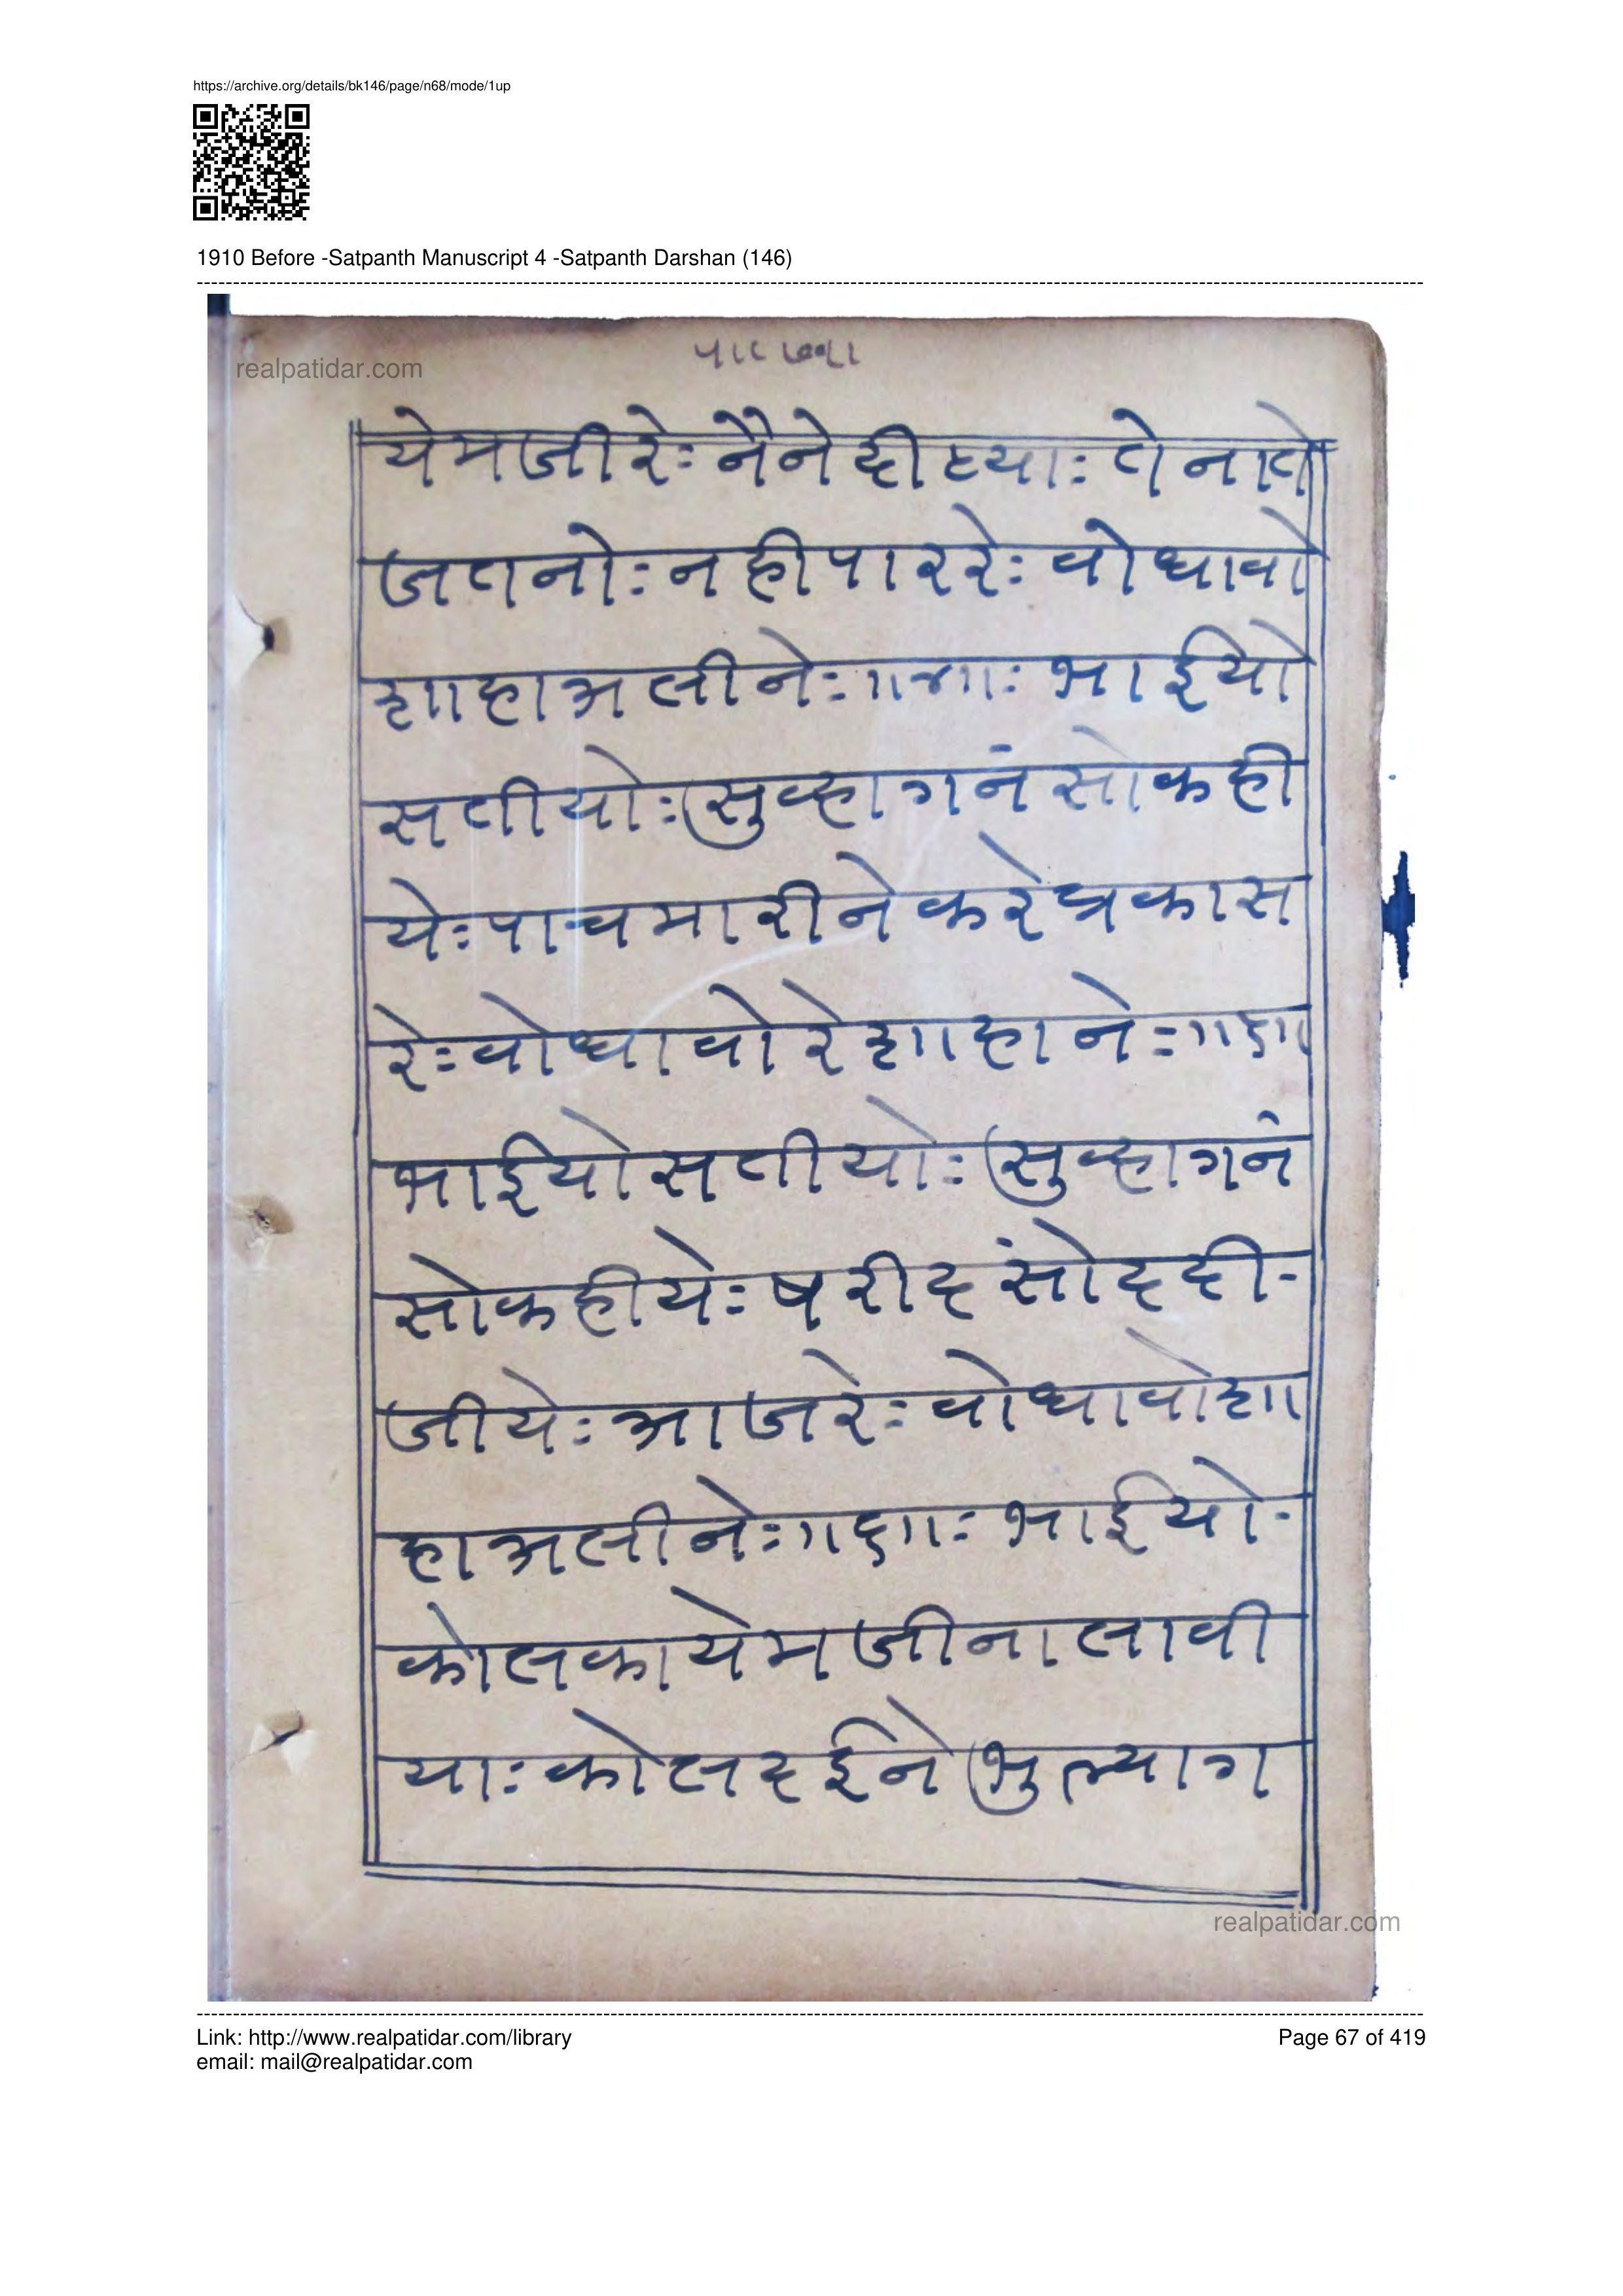 https://archive.org/details/bk146/page/n68/mode/1up
1910 Before -Satpanth Manuscript 4 -Satpanth Darshan (146)
realpatidar.com
येमजीरेः नैने दीठयाः तेनाते
जतनोः नही पार रेः वोधावो
शाहाअलीनेः ॥४॥ः भाईयो
सतीयोः सुव्हागनं सोकही
येः पाचमारीने करेप्रकास
रेः वोधावो रे शाहा नेः ॥५॥
भाईयो सतीयोः सुव्हागनं
सोकहीयेः षरीद सोंद दी-
जीयेः आजरेः वोधावोशा
हाअलीनेः ॥६॥ः भाईयो-
कोलकायेमजीना लावी
याः कोल दईने भुल्याग
realpatidar.com
Link: http://www.realpatidar.com/library
email: mail@realpatidar.com
Page 67 of 419